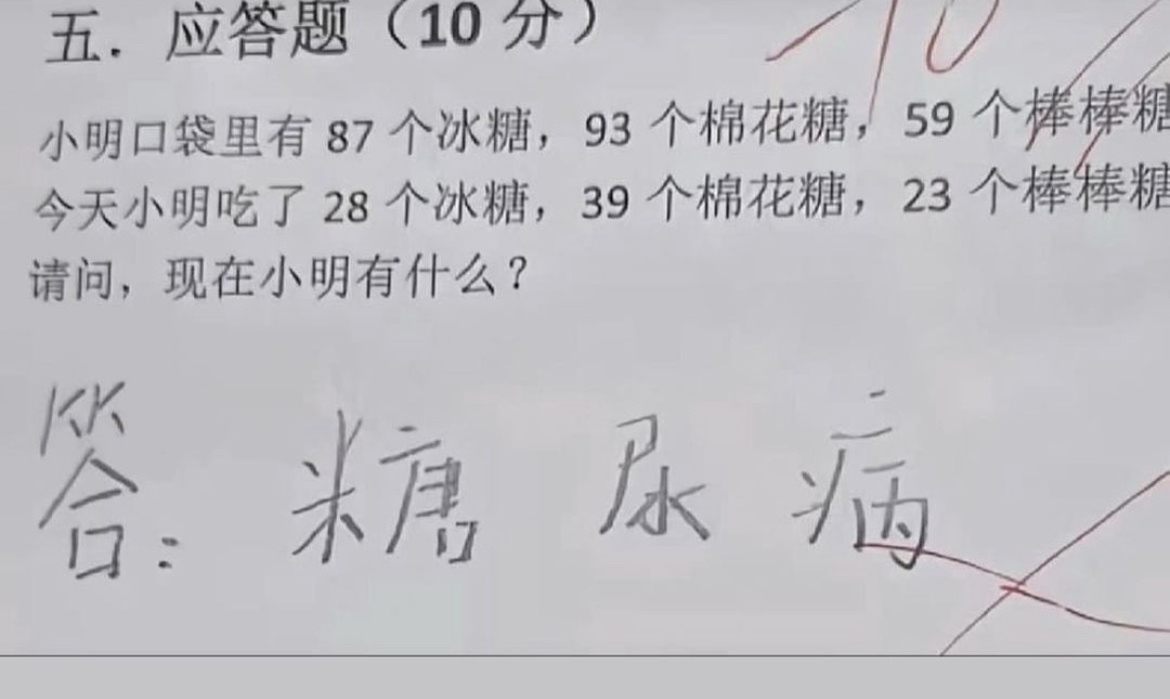 五. 应答题（10 分）
小明口袋里有 87 个冰糖，93 个棉花糖，59 个棒棒糖
今天小明吃了 28 个冰糖，39 个棉花糖，23 个棒棒糖
请问，现在小明有什么？
答：糖尿病